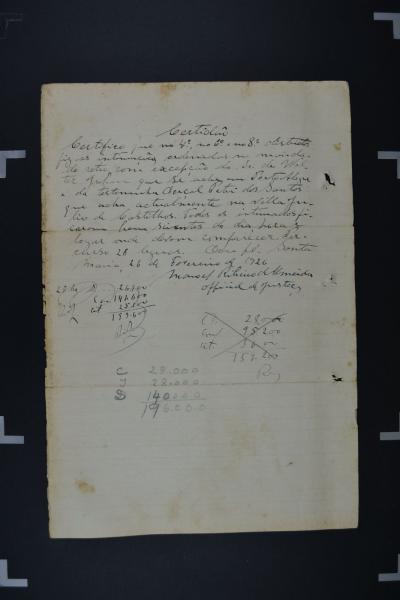 Certidão
Certifico que no 4º, no 6º e no 8º districto
fiz as intimações ordenadas no manda-
do retro, com excepção do Sr. de Wal-
ter que se acha em Porto Alegre
e da testemunha Petri dos Santos
que acha actualmente na Villa Ju-
lio de Castilhos. Todos os intimados fi-
caram bem scientes do dia, hora e
logar onde devem comparecer. Per-
curso 28 leguas. Santa
Maria, 26 de Fevereiro de 1926
Manoel Ribeiro d'Almeida
Official de Justiça
26.400
146.600
159.600
28.000
95.200
159.200
C 28.000
J 28.000
S 140.000
196.000